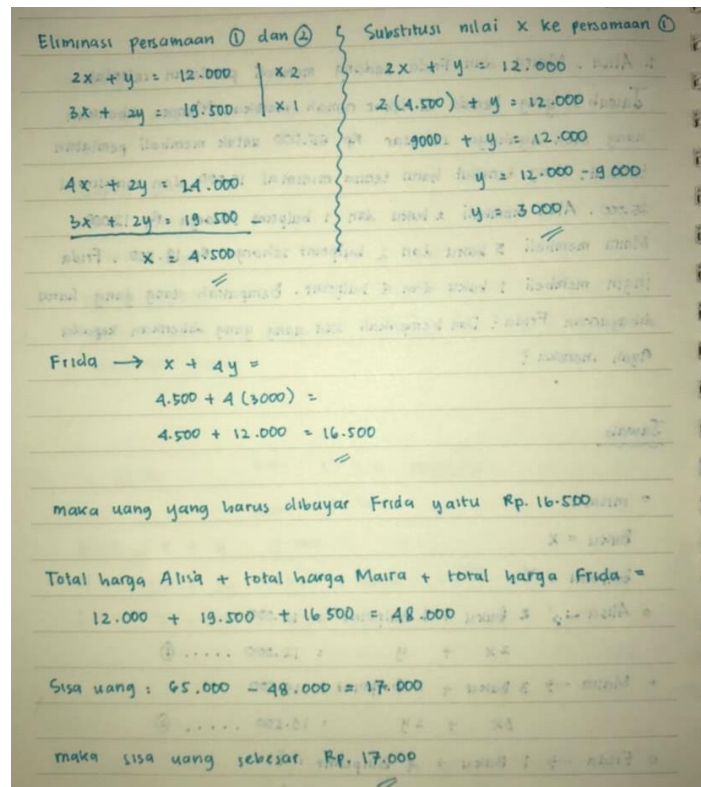 Eliminasi persamaan ① dan ②
2x + y = 12.000 | x 2
3x + 2y = 19.500 | x 1
4x + 2y = 24.000
3x + 2y = 19.500 -
x = 4.500
Substitusi nilai x ke persamaan ①
2x + y = 12.000
2 (4.500) + y = 12.000
9000 + y = 12.000
y = 12.000 - 9000
y = 3000
Frida → x + 4y =
4.500 + 4 (3000) =
4.500 + 12.000 = 16.500
maka uang yang harus dibayar Frida yaitu Rp. 16.500
Total harga Alisa + total harga Maira + total harga Frida =
12.000 + 19.500 + 16 500 = 48.000
Sisa uang : 65.000 - 48.000 = 17.000
maka sisa uang sebesar Rp. 17.000